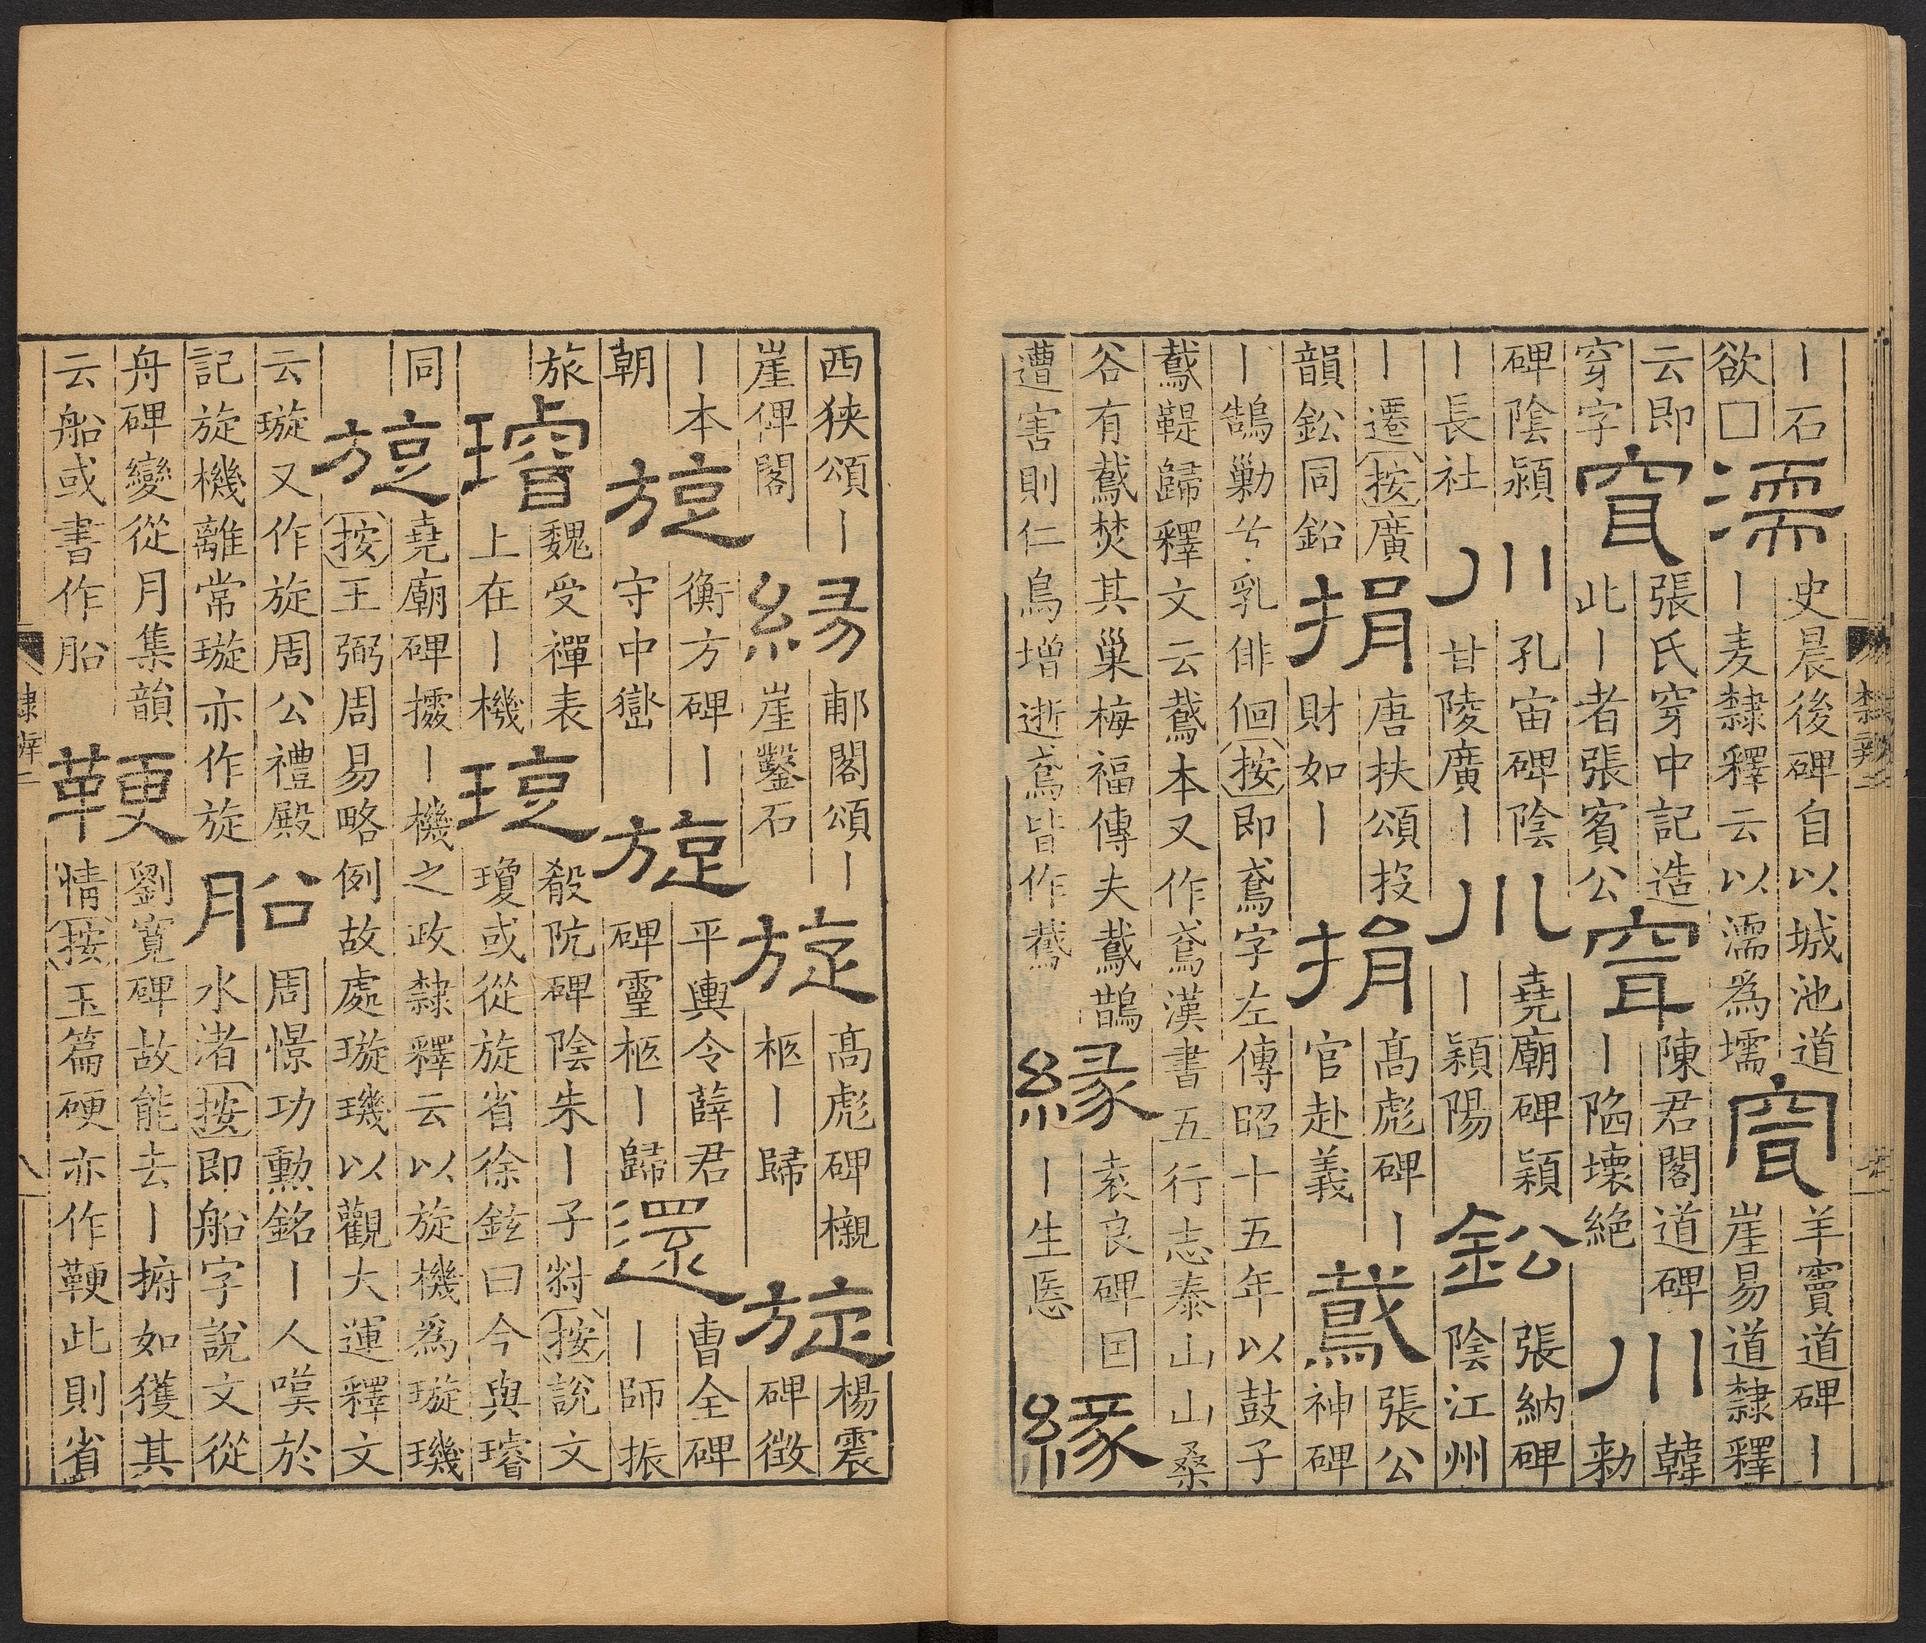 丨石欲□濡史晨後碑自以城池道丨麦隸釋云以濡為壖窅羊竇道碑丨崖易道隸釋
云即穿字穿張氏穿中記造此丨者張賓公穿陳君閣道碑丨陷壊絶川韓勑
碑陰潁丨長社川孔宙碑陰甘陵廣丨川堯廟碑穎丨穎陽鈆張納碑陰江州
丨遷按廣韻鈆同鉛捐唐扶頌投財如丨捐髙彪碑丨官赴義鳶張公神碑
丨鵠勦兮乳俳佪按即鳶字左傳昭十五年以鼓子鳶鞮歸釋文云鳶本又作鳶漢書五行志泰山山桑
谷有䳒焚其巢梅福傳夫䳒鵲遭害則仁鳥增逝鳶皆作䳒緣袁良碑囯丨生緣
隸辨二
西狹頌丨崖俾閣緣郙閣頌丨崖鑿石旋髙彪碑櫬柩丨歸旋楊震碑徴
丨本朝旋衡方碑丨守中嶽旋平輿令薛君碑靈柩丨歸還曹全碑丨師振
旅璿魏受禪表上在丨機琁殽阬碑陰朱丨子尌按說文瓊或從旋省徐鉉曰今與璿
同旋堯廟碑攄丨機之政隸釋云以旋機為璇璣按王弼周易略例故處璇璣以觀大運釋文
云璇又作旋周公禮殿記旋機離常璇亦作旋船周憬功勳銘丨人嘆於水渚按即船字說文從
舟碑變從月集韻云船或書作舩鞕劉寬碑故能去丨拊如獲其情按玉篇硬亦作鞕此則省
隸辨二
八